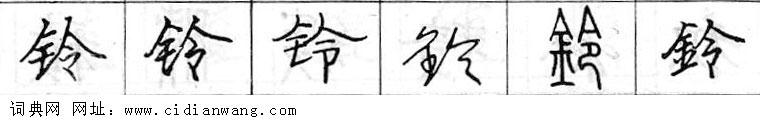 铃 铃 铃 铃 鈴 鈴
词典网 网址：www.cidianwang.com